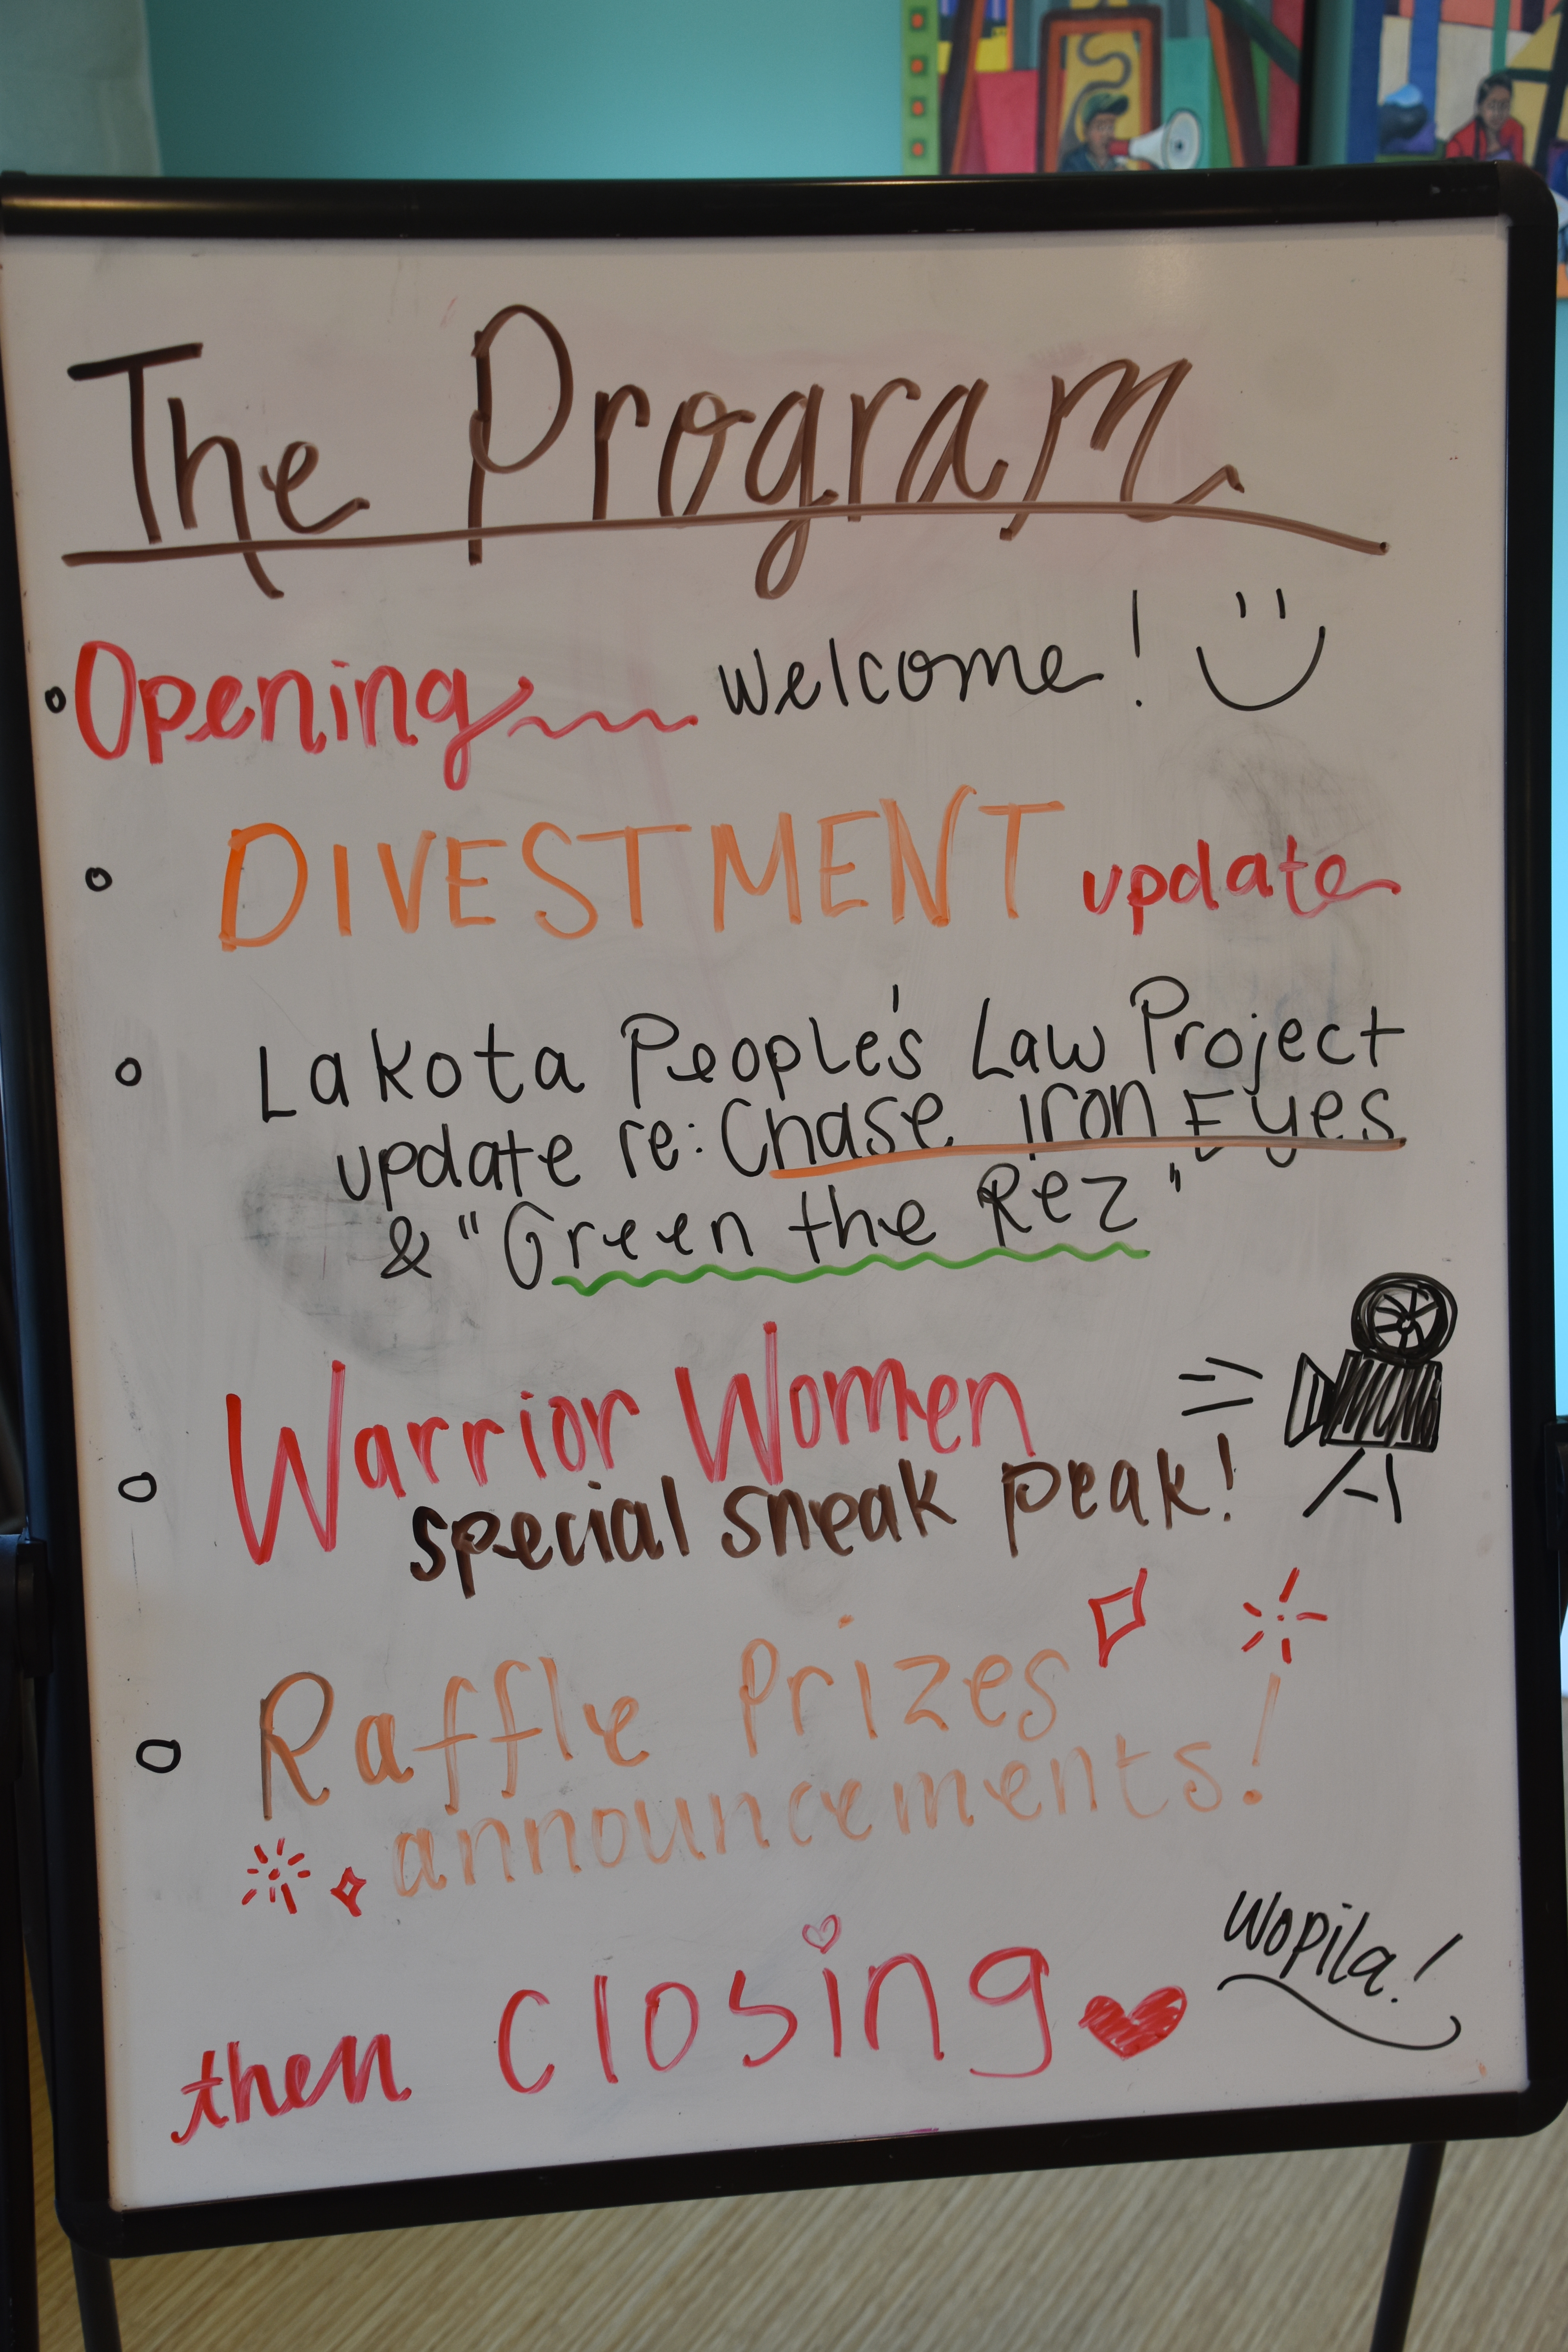 The Program
Opening welcome!
DIVESTMENT update
Lakota People's Law Project
update re: Chase Iron Eyes
& "Green the Rez"
Warrior Women
special sneak peak!
Raffle Prizes
announcements!
Wopila!
then closing